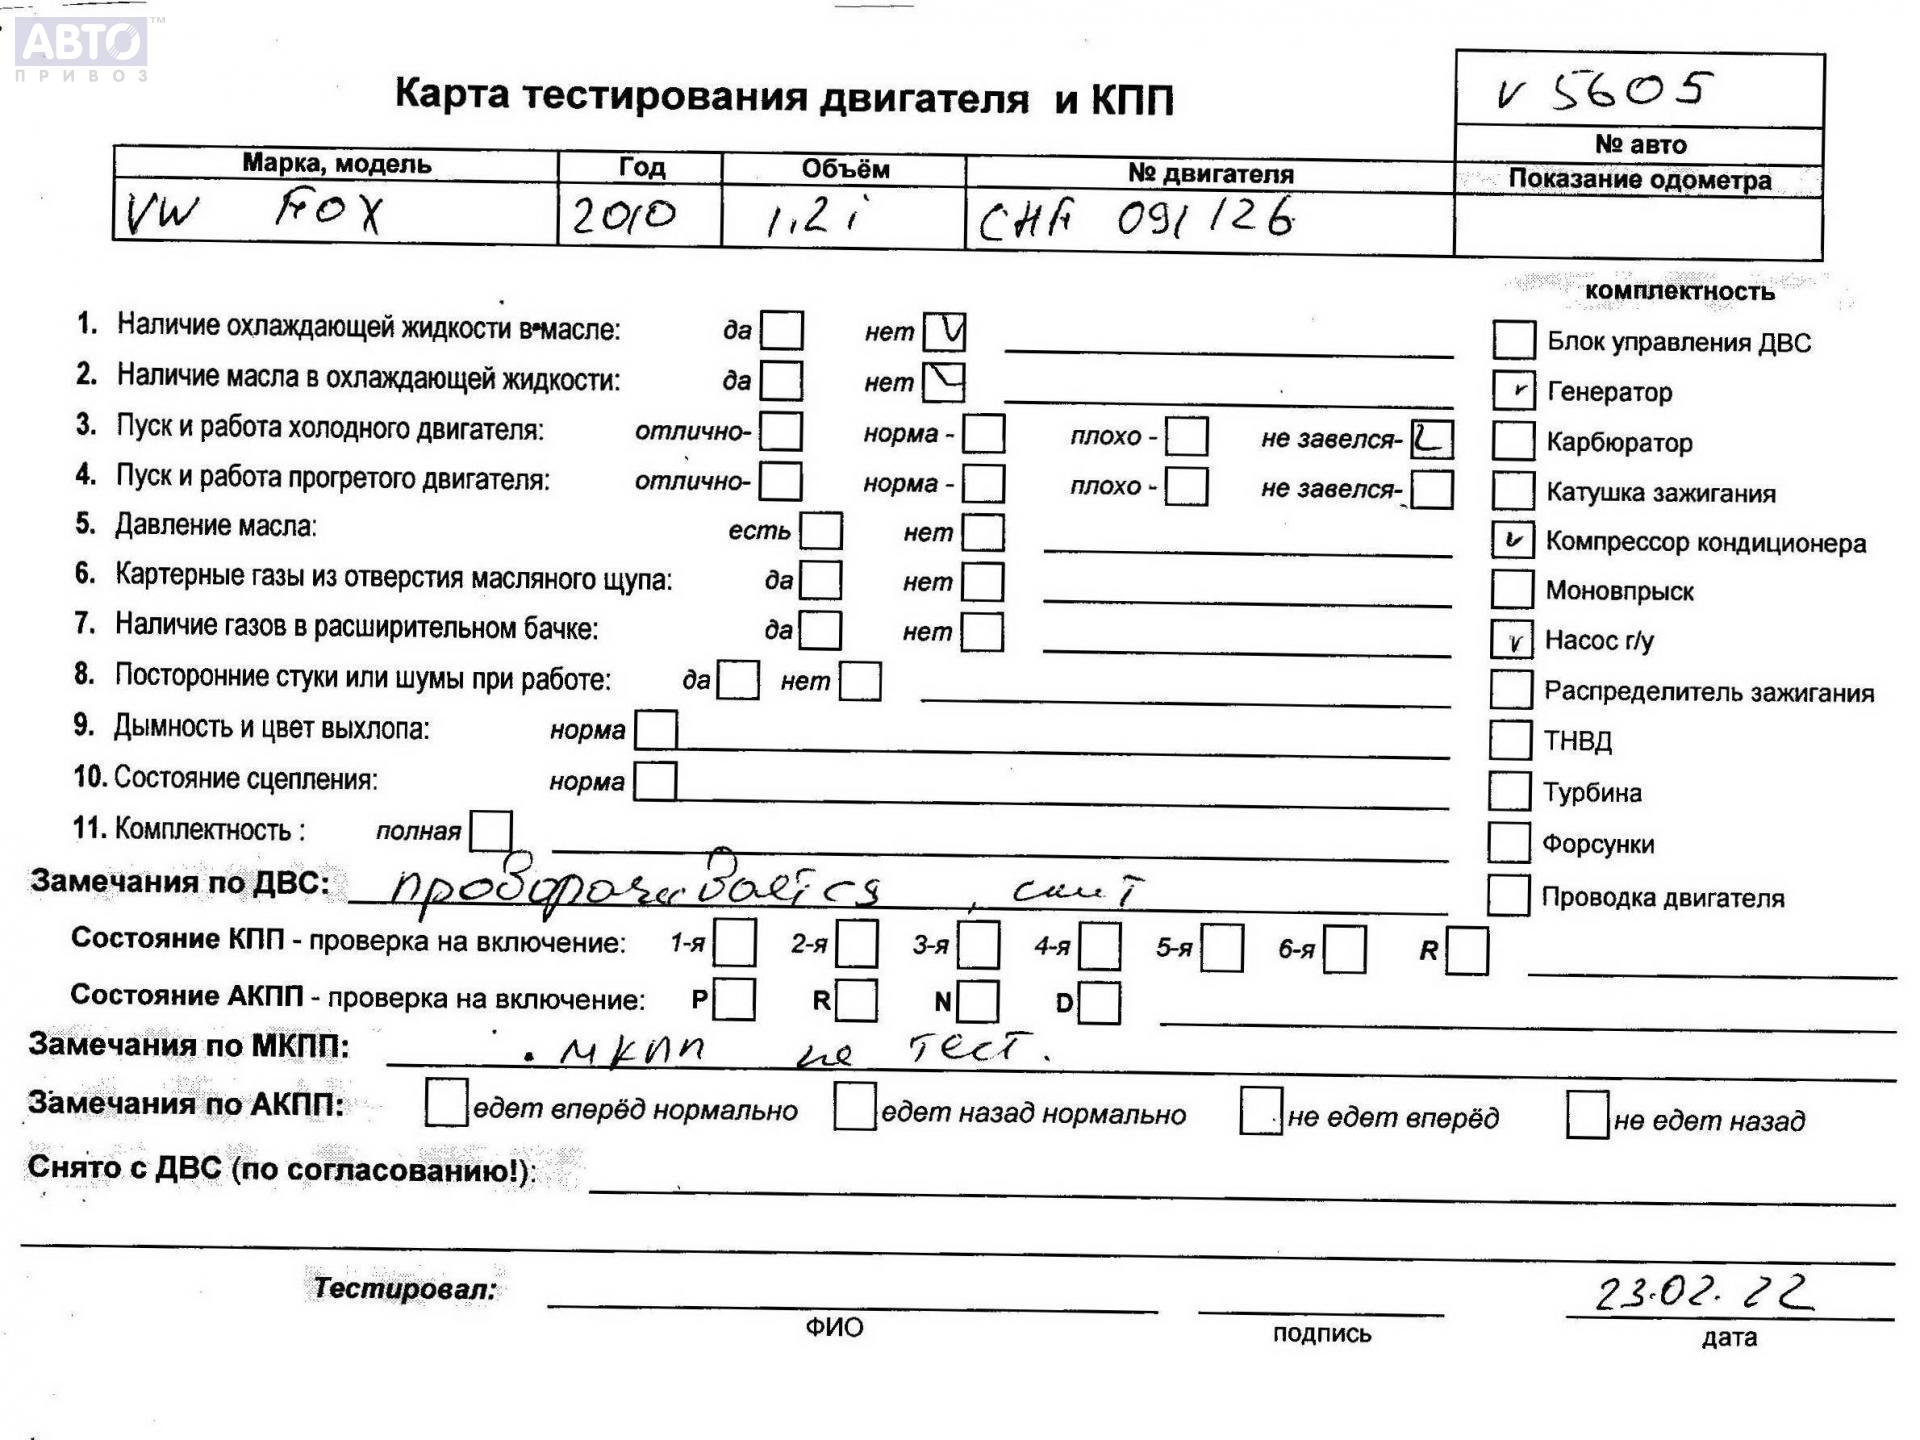 АВТО™
ПРИВОЗ
Карта тестирования двигателя и КПП
v 5605
№ авто
Марка, модель Год Объём № двигателя Показание одометра
VW FOX 2010 1,2 i CHF 091126
комплектность
1. Наличие охлаждающей жидкости в масле: да нет V
Блок управления ДВС
2. Наличие масла в охлаждающей жидкости: да нет
v Генератор
3. Пуск и работа холодного двигателя: отлично- норма - плохо - не завелся-
Карбюратор
4. Пуск и работа прогретого двигателя: отлично- норма - плохо - не завелся-
Катушка зажигания
5. Давление масла: есть нет
v Компрессор кондиционера
6. Картерные газы из отверстия масляного щупа: да нет
Моновпрыск
7. Наличие газов в расширительном бачке: да нет
v Насос г/у
8. Посторонние стуки или шумы при работе: да нет
Распределитель зажигания
9. Дымность и цвет выхлопа: норма
ТНВД
10. Состояние сцепления: норма
Турбина
11. Комплектность : полная
Форсунки
Замечания по ДВС: проворачивается,
Проводка двигателя
Состояние КПП - проверка на включение: 1-я 2-я 3-я 4-я 5-я 6-я R
Состояние АКПП - проверка на включение: P R N D
Замечания по МКПП: . МКПП не тест.
Замечания по АКПП: едет вперёд нормально едет назад нормально не едет вперёд не едет назад
Снято с ДВС (по согласованию!):
Тестировал: 23.02.22
ФИО подпись дата